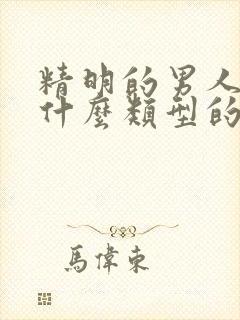 精明的男人
什麼類型的
馬偉東